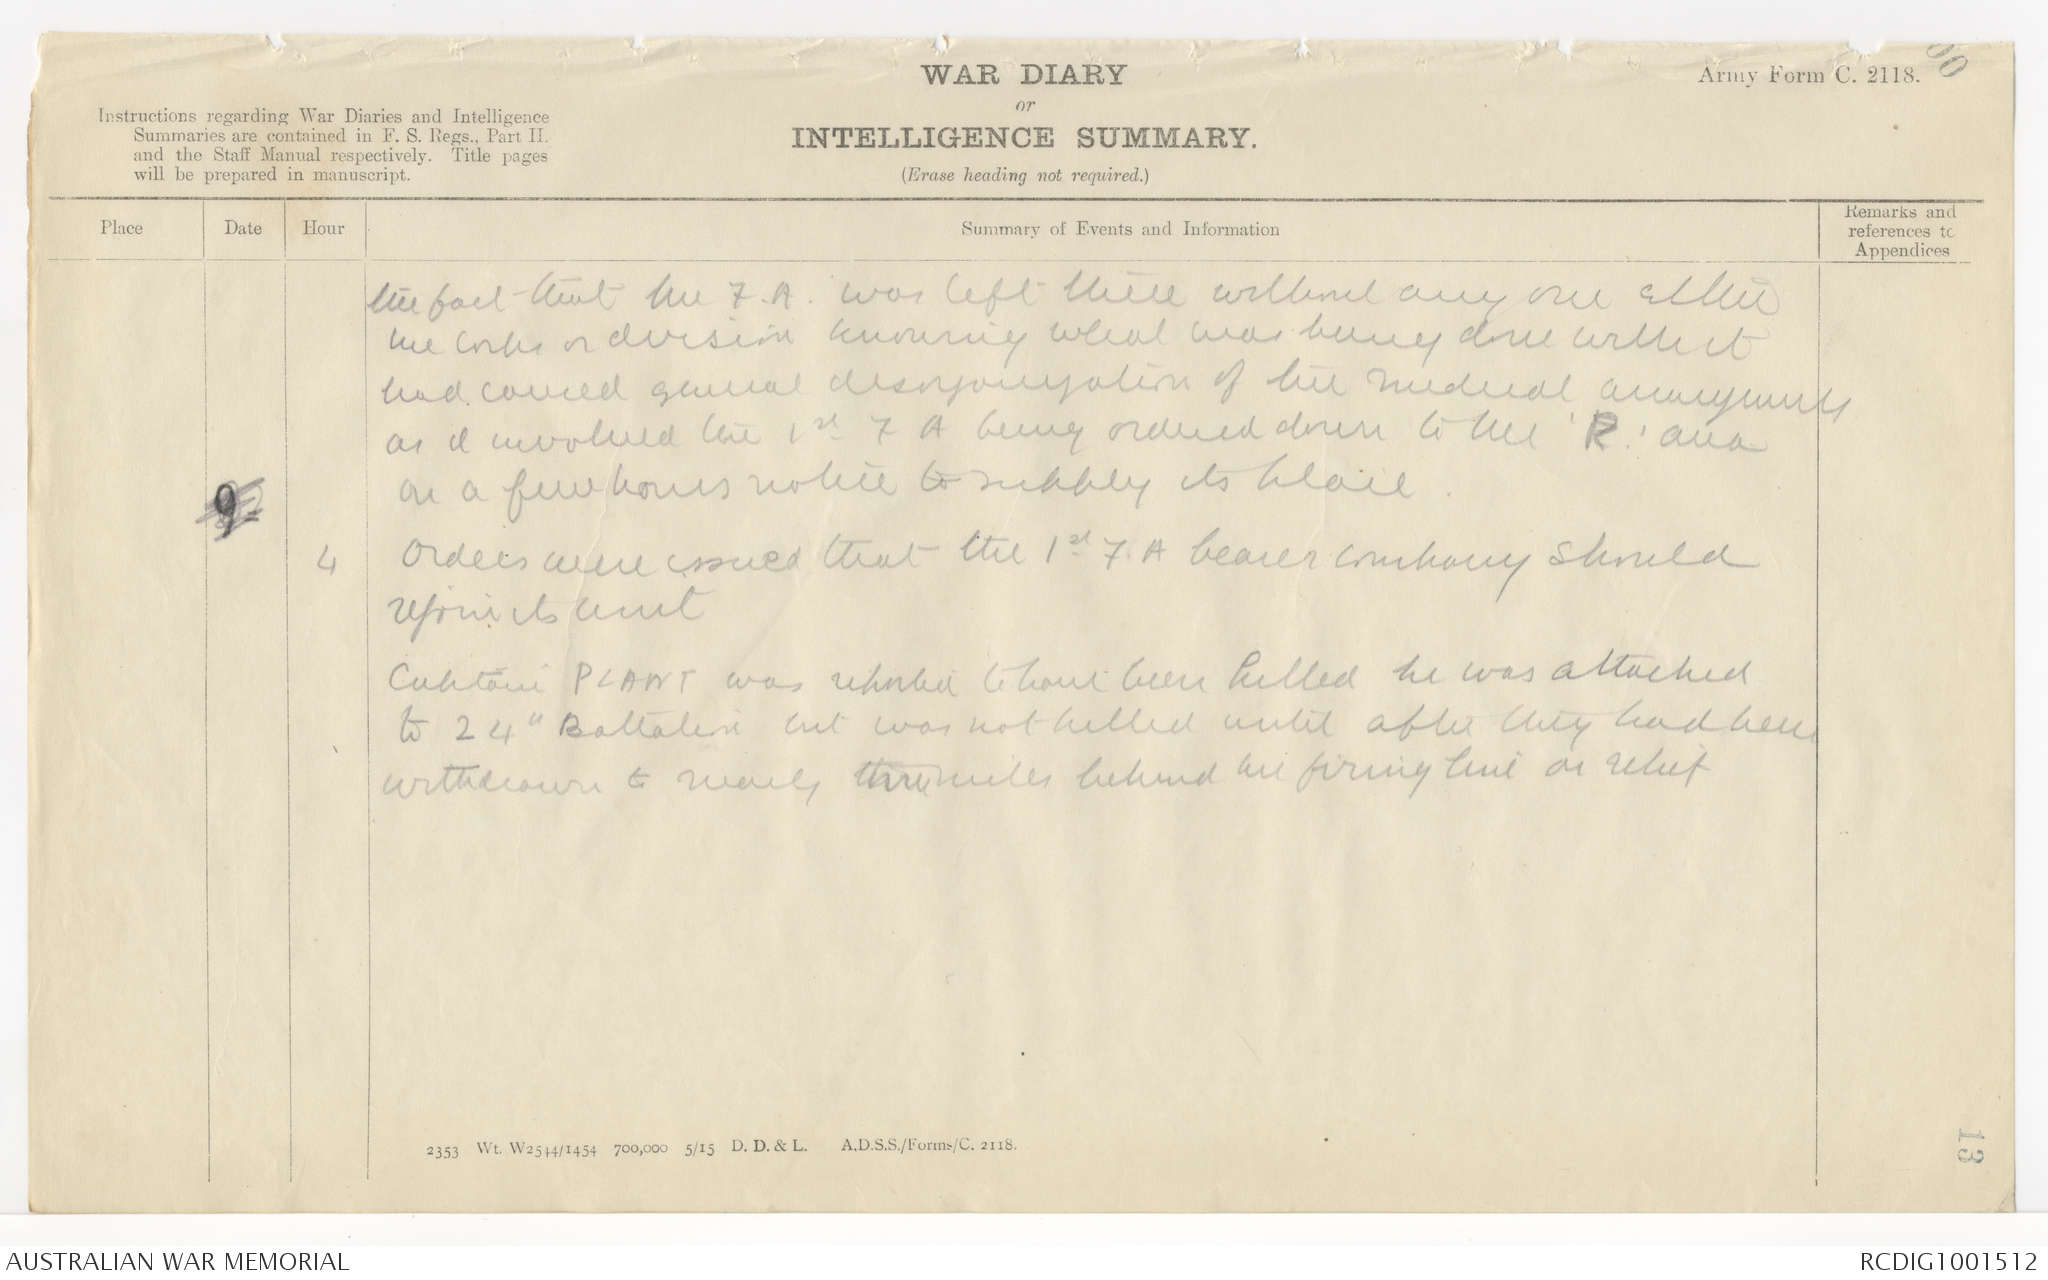 WAR DIARY
or
INTELLIGENCE SUMMARY.
(Erase heading not required.)
Army Form C. 2118.
00
Instructions regarding War Diaries and Intelligence
Summaries are contained in F. S. Regs., Part II.
and the Staff Manual respectively. Title pages
will be prepared in manuscript.
Place
Date
Hour
Summary of Events and Information
Remarks and
references to
Appendices
the fact that the F.A. was left there without any one either
the Corps or division knowing what was being done with it
had caused general disorganization of the medical arrangements
as it involved the 1st F A being ordered down to the 'R' area
on a few hours notice to supply its place.
9
4 Orders were issued that the 1st F.A bearer company should
rejoin its unit
Captain PLANT was reported to have been killed he was attached
to 24th Battalion but was not killed until after they had been
withdrawn to nearly three miles behind the firing line on relief
2353 Wt. W2544/1454 700,000 5/15 D. D. & L. A.D.S.S./Forms/C. 2118.
13
AUSTRALIAN WAR MEMORIAL
RCDIG1001512